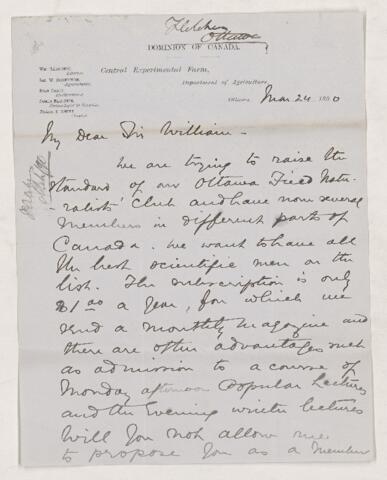 Fletcher
Ottawa
DOMINION OF CANADA.
Central Experimental Farm,
Department of Agriculture,
Ottawa, Mar. 24 1890
My Dear Sir William –
We are trying to raise the
standard of our Ottawa Field Natu-
ralists' Club and have now several
members in different parts of
Canada. We want to have all
the best scientific men on the
list. The subscription is only
$1.00 a year, for which we
send a monthly magazine and
there are other advantages such
as admission to a course of
Monday afternoon Popular Lectures
and the Evening winter lectures
Will you not allow me
to propose you as a member